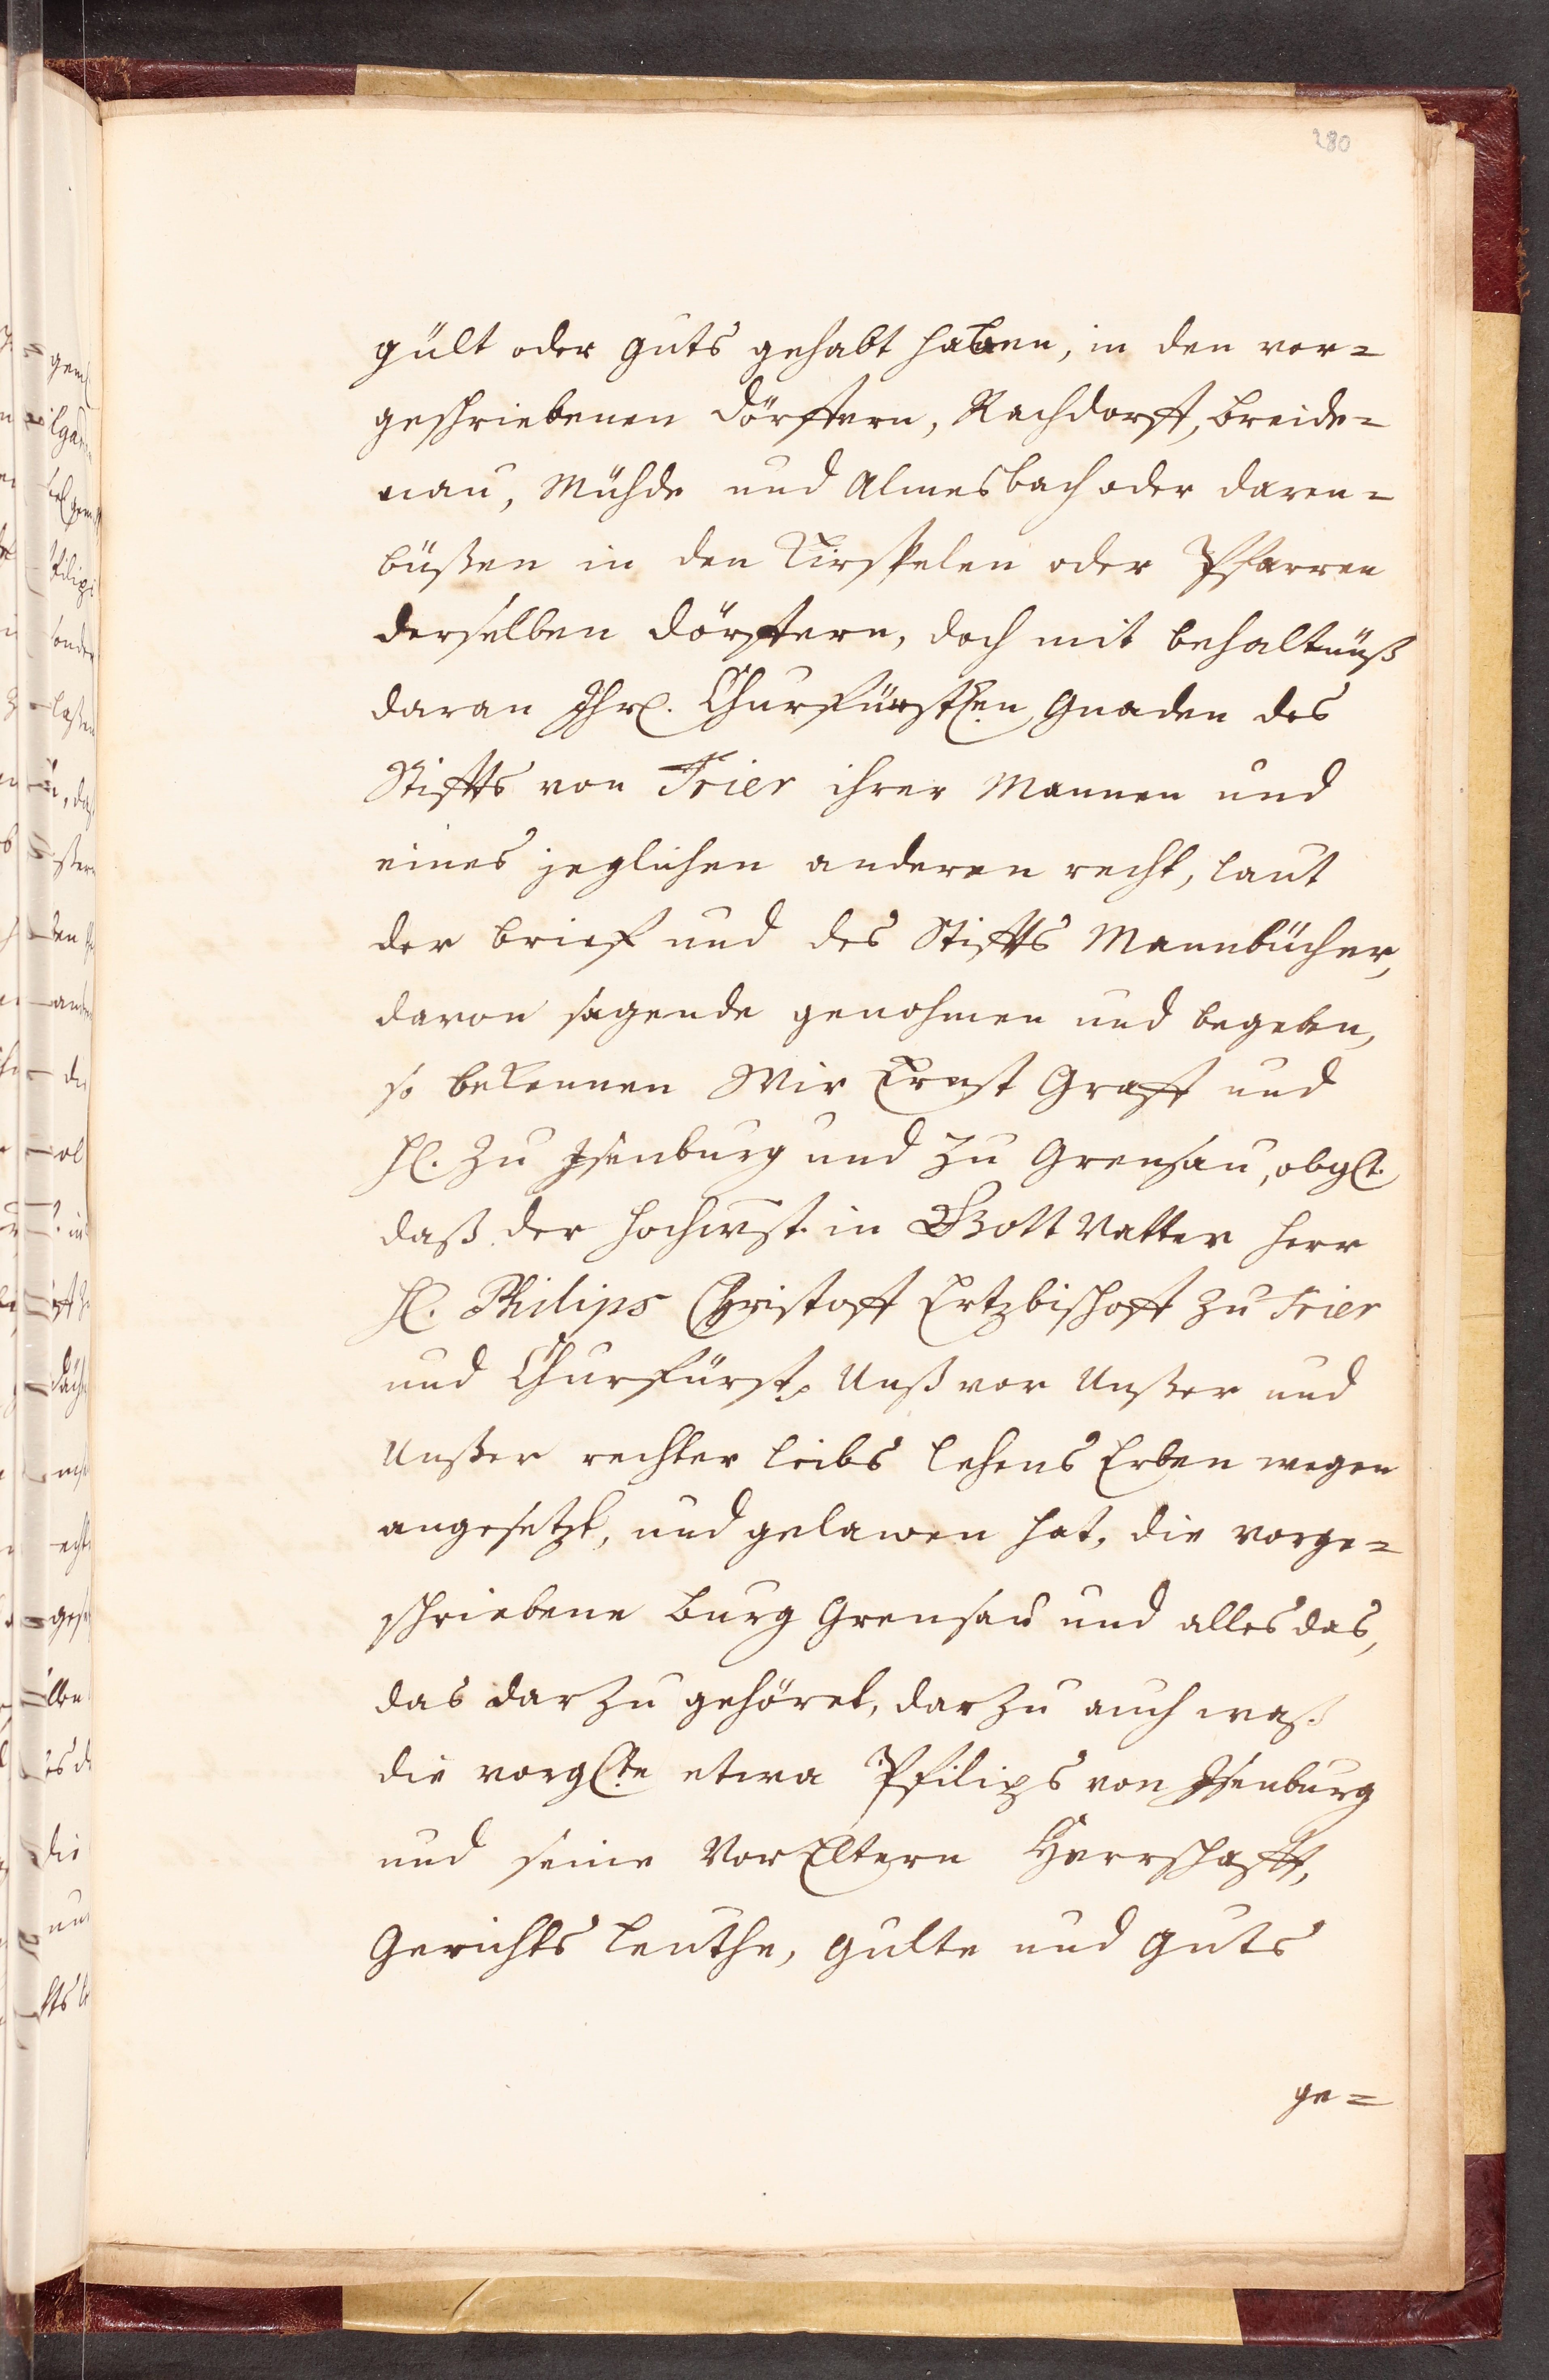 280
gült oder guts gehabt haben, in den vor=
geschriebenen dörffern, Rachdorff, breide=
nau, Mühde und Almesbach oder daren=
bußen in den Kirspelen oder Pfarren
derselben dörffern, doch mit behaltnüß
daran Ihrl. Churfürstlen Gnaden des
Stiffts von Trier ihrer Mannen und
eines jeglichen anderen recht, laut
der brief und des Stiffts Mannbücher,
davon sagende genohmen und begeben,
so bekennen Wir Ernst Graff und
hl. zu Isenburg und zu Grensau, obglt.
daß der hochwst. in Gott Vatter herr
hl. Philips Christoff Ertzbischoff zu Trier
und Churfürst, Unß vor Unßer und
Unßer rechter leibs lehens Erben wegen
angesetzt, und gelawen hat, die vorge=
schriebene burg Grensau und alles das,
das darzu gehöret, darzu auch waß
die vorglte etwa Philips von Isenburg
und seine VorEltern Herrschafft,
Gerichts leuthe, gulte und guts
ge=